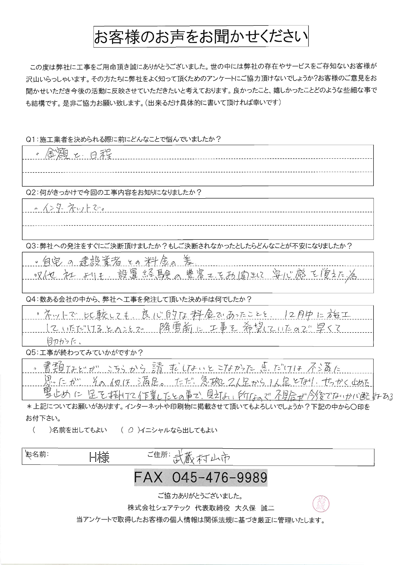 お客様のお声をお聞かせください
この度は弊社に工事をご用命頂き誠にありがとうございました。世の中には弊社の存在やサービスをご存知ないお客様が
沢山いらっしゃいます。その方たちに弊社をよく知って頂くためのアンケートにご協力頂けないでしょうか?お客様のご意見をお
聞かせいただき今後の活動に反映させていただきたいと考えております。良かったこと、嬉しかったことどのような些細な事で
も結構です。是非ご協力お願い致します。(出来るだけ具体的に書いて頂ければ幸いです)
Q1:施工業者を決められる際に前にどんなことで悩んでいましたか?
・金額と日程
Q2:何がきっかけで今回の工事内容をお知りになりましたか?
・インターネットで。
Q3:弊社への発注をすぐにご決断頂けましたか?もしご決断されなかったとしたらどんなことが不安になりましたか?
・自宅の建設業者との料金の差
・他社よりも、設置経験の豊富さをお聞きして安心感を頂いた為
Q4:数ある会社の中から、弊社へ工事を発注して頂いた決め手は何でしたか?
・ネットで比較しても、良心的な料金であったことと、12月中に施工
していただけるとのことで 降雪前に工事を希望していたので早くて
助かった。
Q5:工事が終わってみていかがですか?
・書類などがこちらから請求しないとこなかった点だけは不満に
思ったが その他は満足。ただ、2人から1人となり、
*上記についてお願いがあります。インターネットや印刷物に掲載させて頂いてもよろしいでしょうか?下記の中から〇印を
お付下さい。
( )名前を出してもよい (○)イニシャルなら出してもよい
お名前: H様 ご住所: 武蔵村山市
FAX 045-476-9989
ご協力ありがとうございました。
株式会社シェアテック 代表取締役 大久保 誠二
当アンケートで取得したお客様の個人情報は関係法規に基づき厳正に管理いたします。